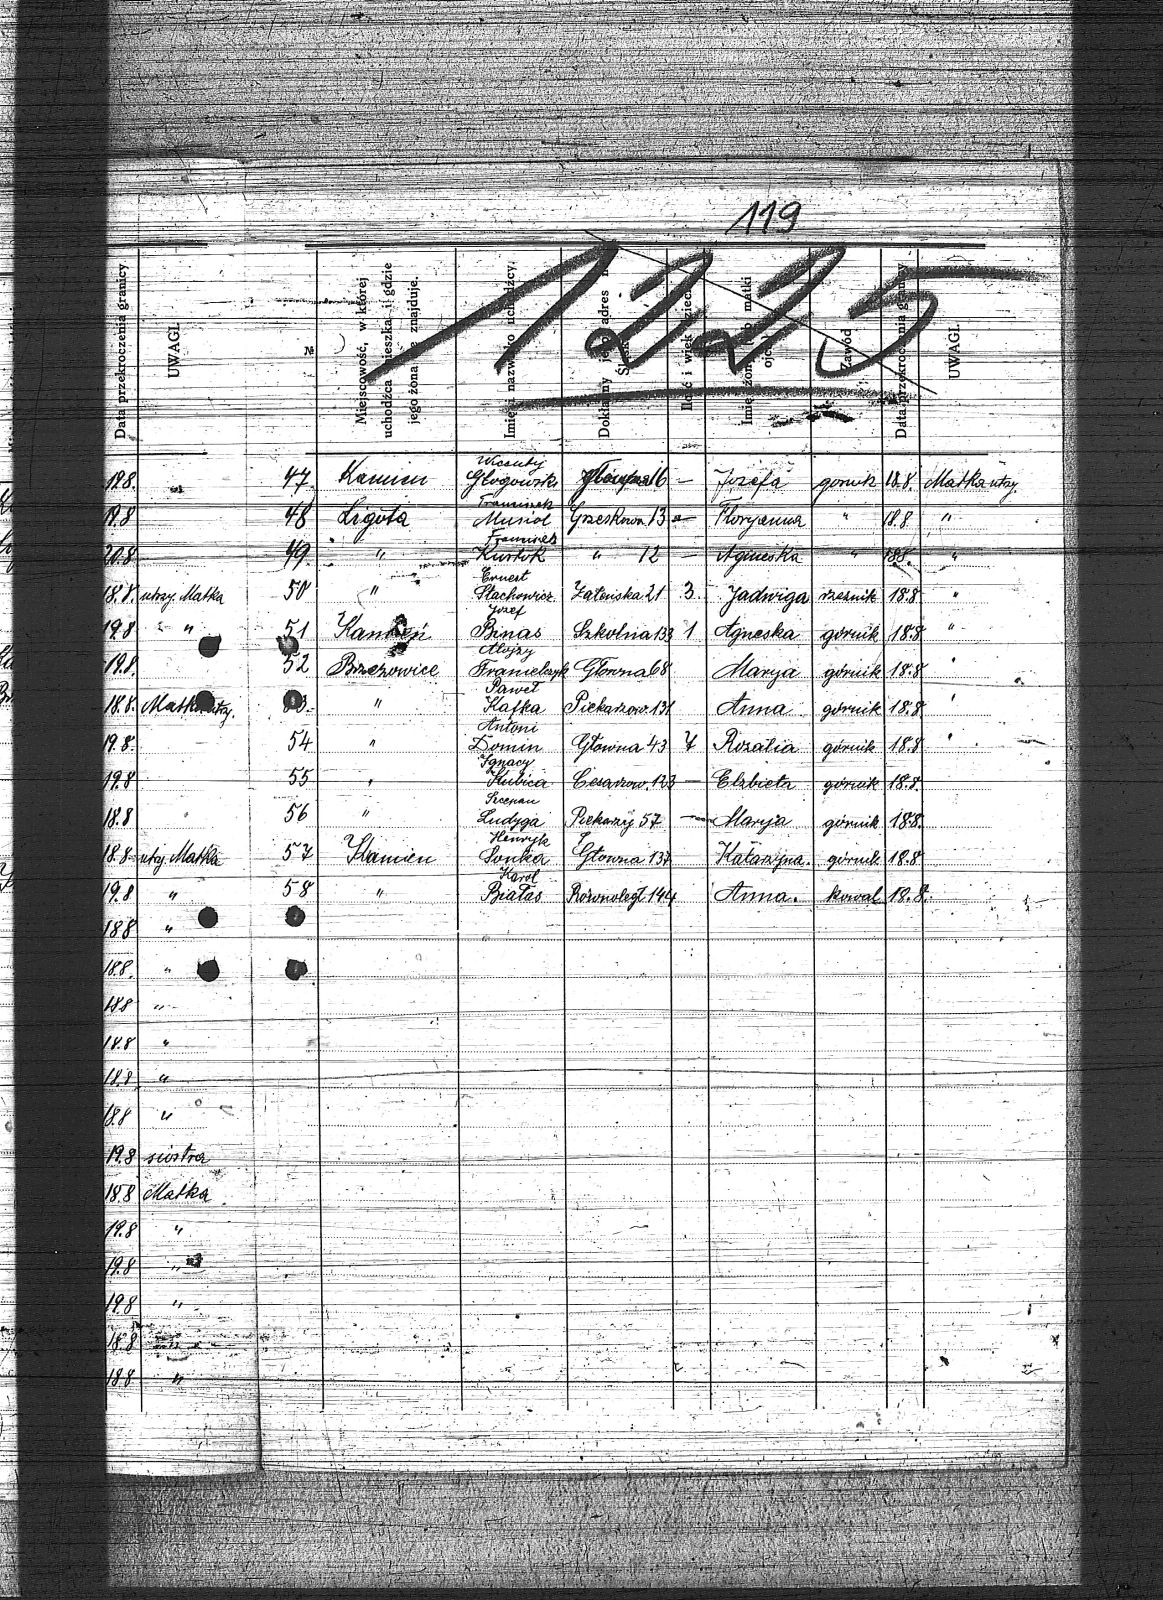 119
1225
Data przekroczenia granicy.
UWAGI.
№
Miejscowość, w której uchodźca mieszka i gdzie jego żona się znajduje.
Imię i nazwisko uchodźcy.
Dokładny jego adres
Ilość i wiek dzieci
Imię żony lub matki
Zawód
Data przekroczenia granicy
UWAGI.
19.8. 47 Kamien Wicenty Głogowski 16 — Jozefa gornik 18.8. Matka utrzy.
19.8 48 Ligota Franciszek Musioł Grzeskowa 13 — Floryanna " 18.8 "
20.8 49 " Franciszek Kurtok " 12 — Agnieska " 18.8. "
18.8. utrzy. Matka 50 " Ernest Stachowicz Załenska 21 3. Jadwiga rzeznik 18.8 "
19.8 " 51 Kamień Jozef Binas Szkolna 133 1 Agneska górnik 18.8 "
19.8. 52 Brzezowice Alojzy Franielczyk Głowna 68 Marya górnik 18.8 "
18.8. Matka utrzy. 53. " Paweł Kafka Piekarzow. 131 Anna górnik 18.8 "
19.8. 54 " Antoni Domin Głowna 43 7 Rozalia górnik 18.8 "
19.8 55 " Ignacy Kubica Cesarzow. 123 — Elzbieta górnik 18.8.
18.8 56 " Szczepan Ludyga Piekarzy 57 — Marya górnik 18.8.
18.8 utrzy. Matka 57 Kamien Henryk Sonka Głowna 137 Katarzyna. górnik 18.8
19.8 " 58 " Karol Białas Rożnoległ 144 Anna. kowal 18.8.
18.8 "
18.8. "
18.8 "
18.8 "
18.8. "
18.8 "
19.8 siostra
18.8 Matka
19.8 "
19.8 "
19.8 "
18.8
18.8 "